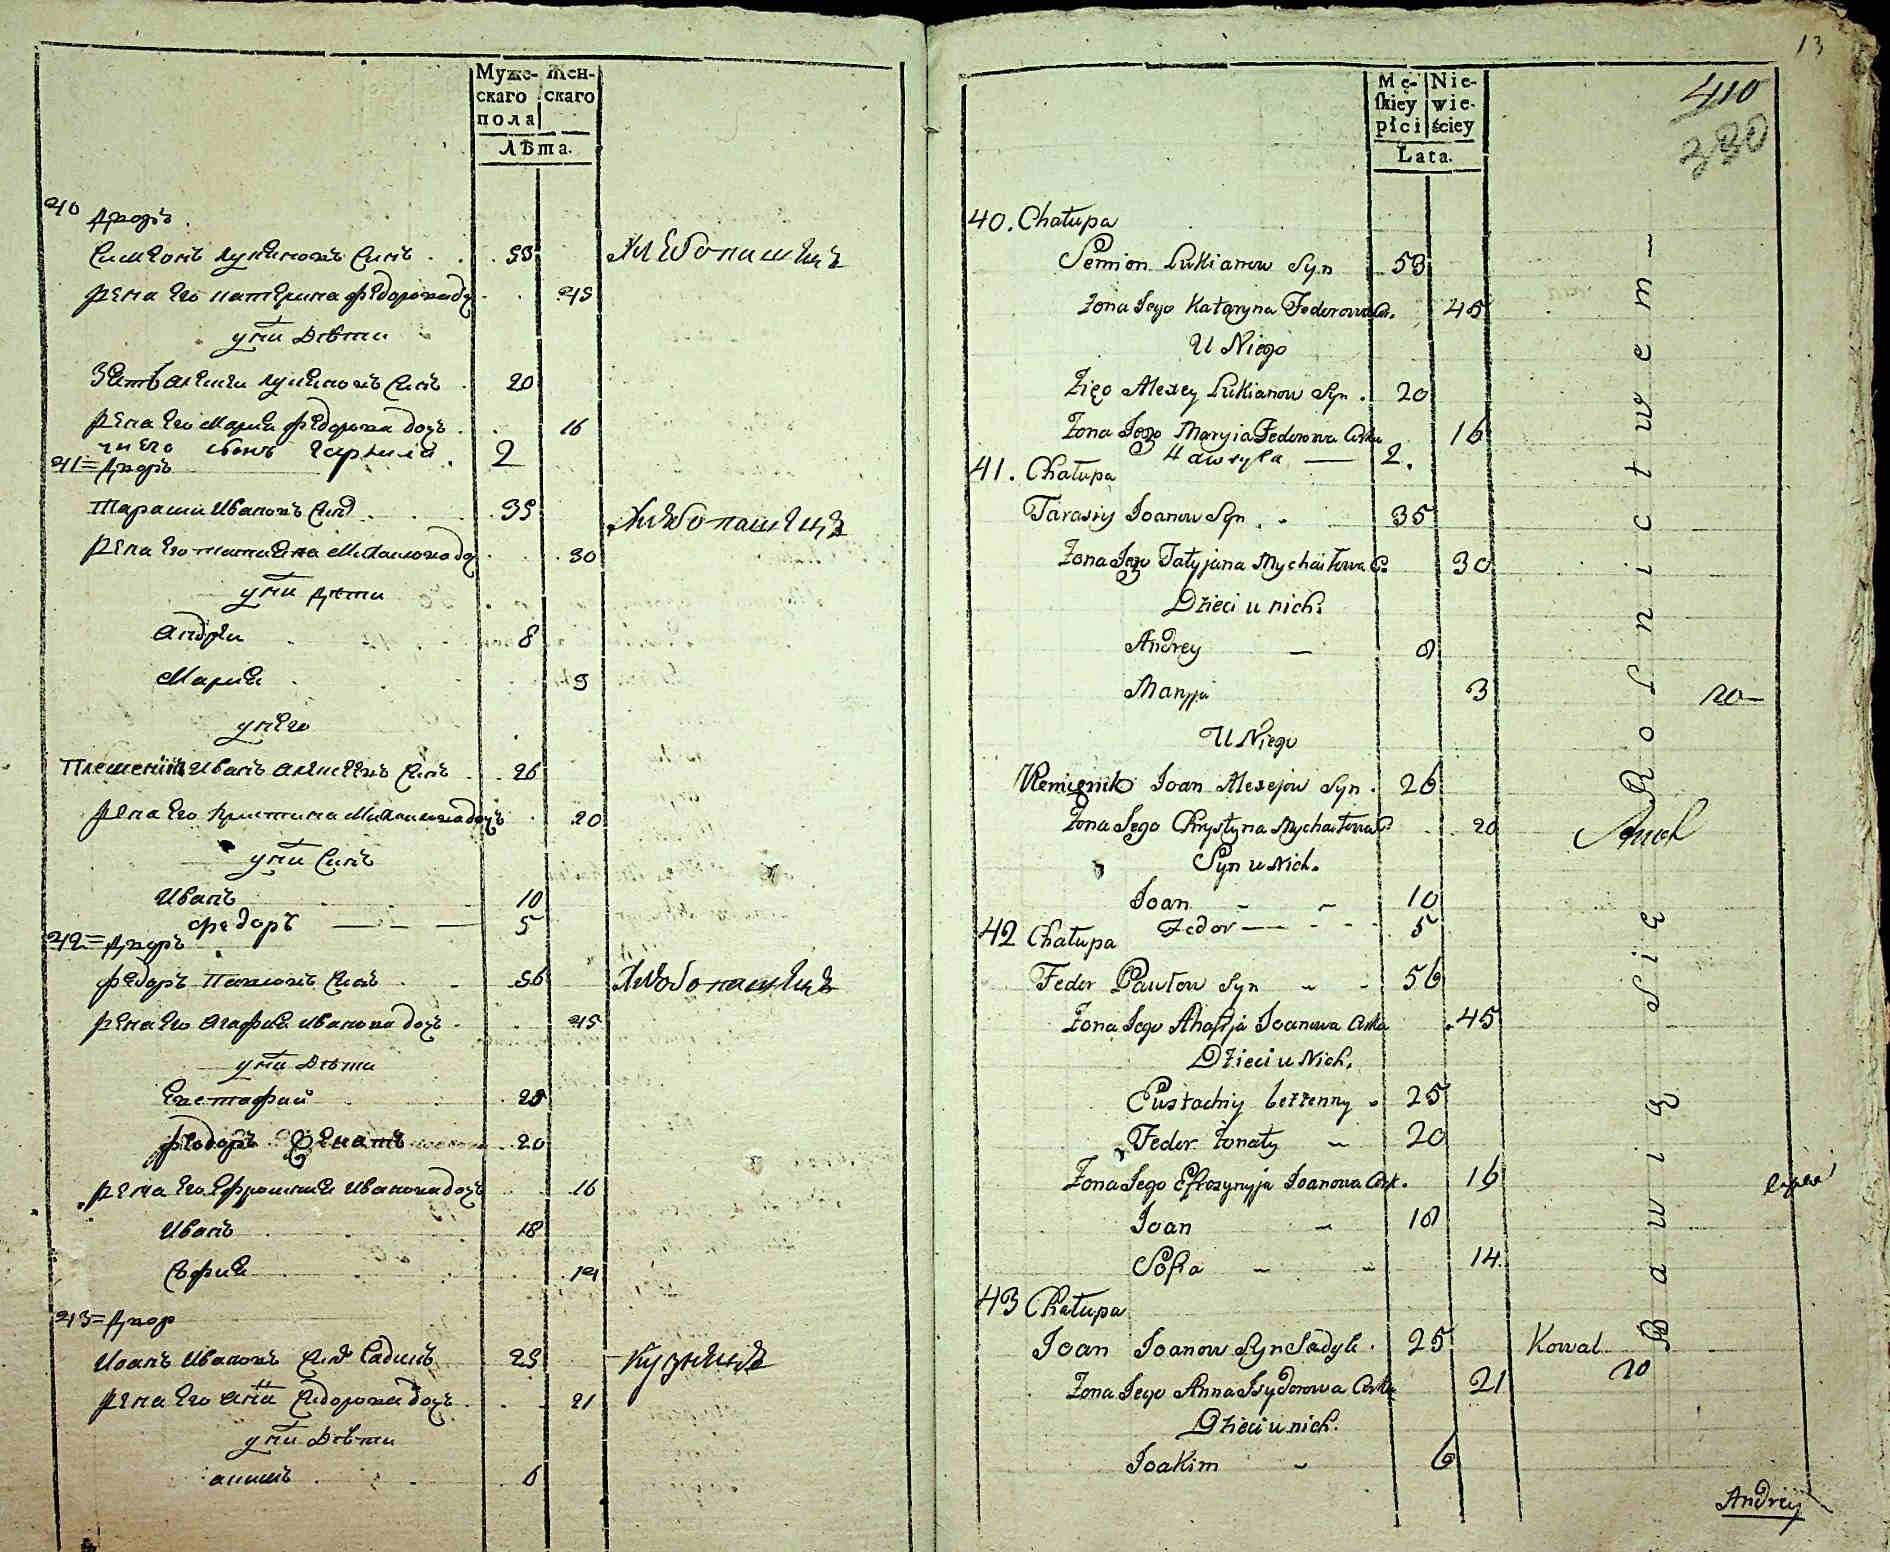 Муже-
скаго
пола
Жен-
скаго
Лѣта.
40 Дворъ
Симионъ Лукиановъ Синъ 53 Хлебопашецъ
Жена Его Катерина Федорова до 45
у ни Дѣти
Зять Алекси Лукиановъ Синъ 20
Жена Его Мария Федорова доч 16
у него сынъ Гаврила 2
41 = Дворъ
Тарасии Ивановъ Синъ 35 Хлебопашецъ
Жена Его Татияна Михаилова до 30
у ни дѣти
Андреи 8
Мария 3
у него
Племеникъ Иванъ Алексеевъ Синъ 26
Жена Его Христина Михаилова доч 20
у ни Синъ
Иванъ 10
Федоръ 5
42 = Дворъ
Федоръ Павловъ Синъ 56 Хлебопашецъ
Жена Его Агафия Иванова доч 45
у ни Дѣти
Евстафий 25
Федоръ Женатъ 20
Жена Его Ефросиния Иванова доч 16
Иванъ 18
София 14
43 = Двор
Иоанъ Ивановъ Синъ Садикъ 25 Кузнецъ
Жена Его Анна Сидорова доч 21
у ни Дѣти
Акимъ 6
13
410
380
Mę-
ſkiey
płci
Nie-
wie-
ściey
Lata.
40. Chałupa
Semion Lukianow Syn 53
Żona Jego Kataryna Fedorowa C. 45
U Niego
Zięc Alexey Lukianow Syn. 20
Żona Jego Maryia Fedorowa Crka 16
Hawryła — 2.
41. Chałupa
Tarasiy Joanow Syn 35
Żona Jego Tatyjana Mychaiłowa C. 30
Dzieci u nich.
Andrey — 8
Maryja 3
20 —
U Niego
Plemięnik Joan Alexejow Syn. 26
Żona Jego Chrystyna Mychaiłowa C 20
Syn u Nich.
Joan 10
Fedor — 5
42 Chałupa
Fedor Pawłow Syn 56
Żona Jego Ahafija Joanowa Crka 45
Dzieci u Nich.
Eustachiy bezżenny 25
Fedor żonaty 20
Żona Jego Efrozynyja Joanowa Crk. 16
Joan 18
Sofia 14
43 Chałupa
Joan Joanow Syn Sadyk. 25 Kowal
20
Żona Jego Anna Isydorowa Crka 21
Dzieci u nich.
Joakim 6
Bawią Się Rolnictwem —
Andriy